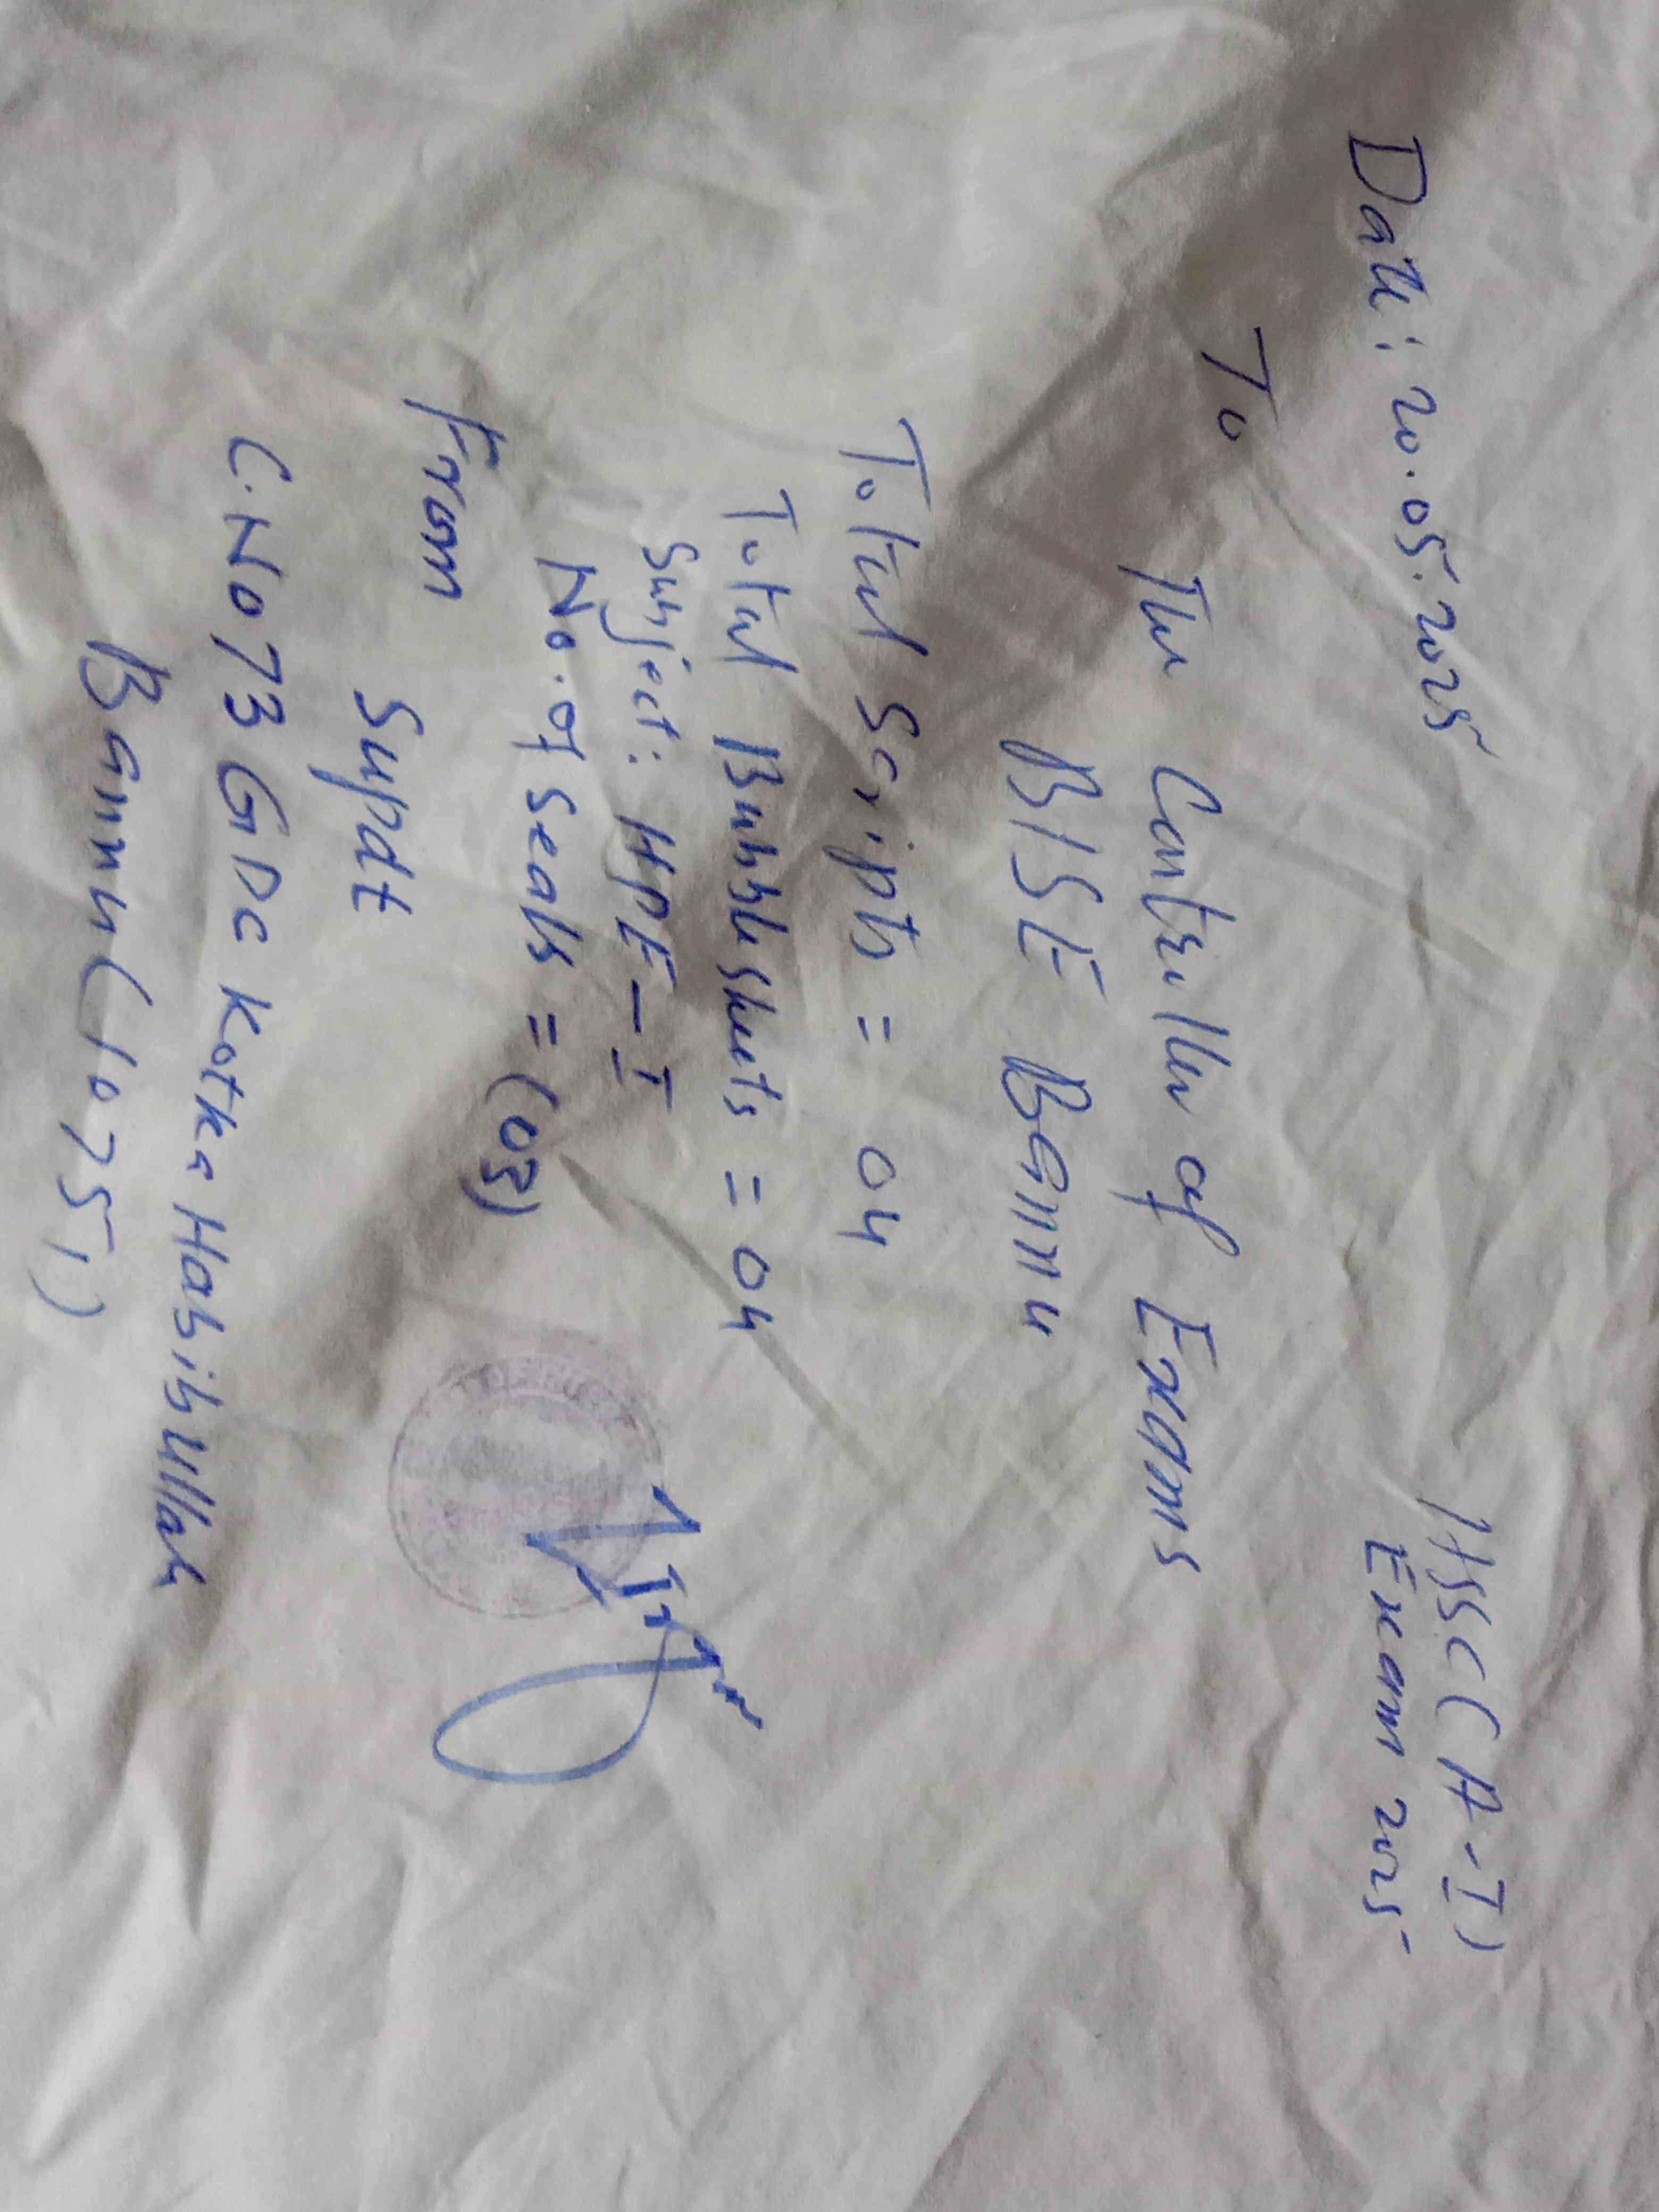 Date: 20.05.2025
HSSC (A-I)
Exam 2025
To
The Controller of Exams
BISE Bannu
Total Scripts = 04
Total Bubble Sheets = 04
Subject: HPE-I
No. of Seals = (03)
From
Supdt
C.No 73 GDC Kotka Habibullah
Bannu (10751)